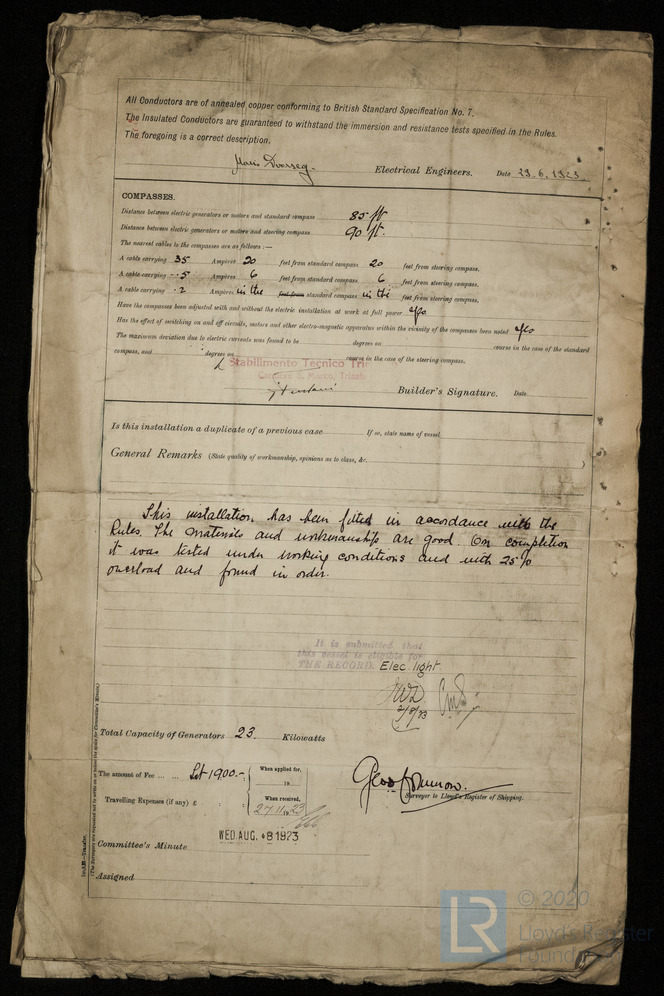 All Conductors are of annealed copper conforming to British Standard Specification No. 7.
The Insulated Conductors are guaranteed to withstand the immersion and resistance tests specified in the Rules.
The foregoing is a correct description.
Electrical Engineers. Date 29.6.1923.
COMPASSES.
Distance between electric generators or motors and standard compass 85 ft
Distance between electric generators or motors and steering compass 90 ft.
The nearest cables to the compasses are as follows:—
A cable carrying 35 Ampères 20 feet from standard compass 20 feet from steering compass.
A cable carrying .5 Ampères 6 feet from standard compass 6 feet from steering compass.
A cable carrying .2 Ampères in the feet from standard compass in the feet from steering compass.
Have the compasses been adjusted with and without the electric installation at work at full power yes
Has the effect of switching on and off circuits, motors and other electro-magnetic apparatus within the vicinity of the compasses been noted yes
The maximum deviation due to electric currents was found to be degrees on course in the case of the standard
compass, and degrees on course in the case of the steering compass.
Stabilimento Tecnico
Builder's Signature. Date
Is this installation a duplicate of a previous case If so, state name of vessel
General Remarks (State quality of workmanship, opinions as to class, &c.
This installation has been fitted in accordance with the
Rules. The materials and workmanship are good. On completion
it was tested under working conditions and with 25%
overload and found in order.
It is submitted that
this vessel is eligible for
THE RECORD. Elec light.
2/8/23
Total Capacity of Generators 23. Kilowatts
The amount of Fee ... ... 1900.-
When applied for,
19
Travelling Expenses (if any) £ : :
When received,
27.11.1923
Surveyor to Lloyd's Register of Shipping.
WED. AUG. 8 1923
Committee's Minute
Assigned
(The Surveyors are requested not to write on or below the space for Committee's Minute.)
© 2020
LR
Lloyd's Register
Foundation